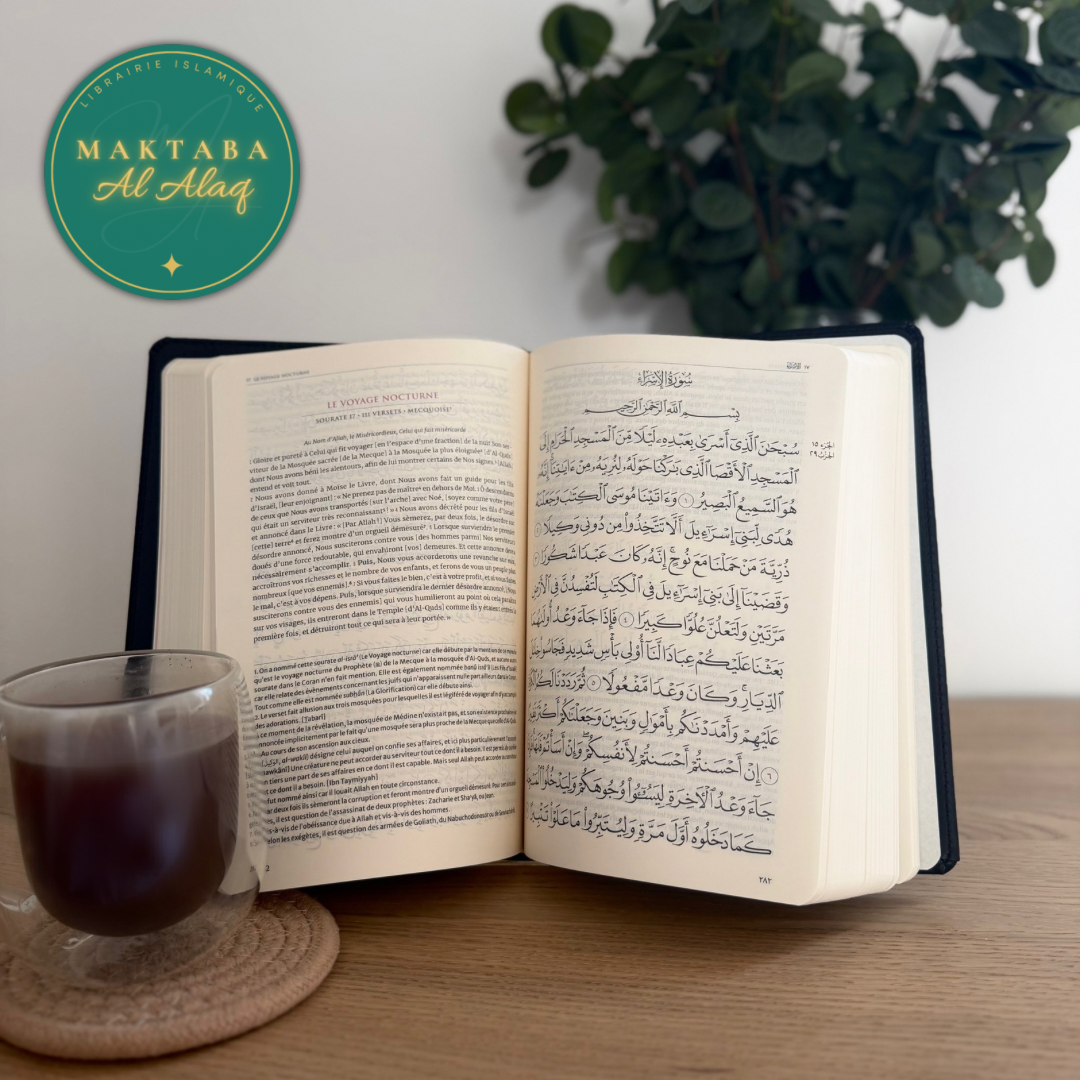 LIBRAIRIE ISLAMIQUE
MAKTABA
Al Alaq
LE VOYAGE NOCTURNE
LE VOYAGE NOCTURNE
SOURATE 17 • 111 VERSETS • MECQUOISE¹
Au Nom d'Allah, le Miséricordieux, Celui qui fait miséricorde
1 Gloire et pureté à Celui qui fit voyager [en l'espace d'une fraction] de la nuit Son ser-
viteur de la Mosquée sacrée [de la Mecque] à la Mosquée la plus éloignée² [d'Al-Qods],
dont Nous avons béni les alentours, afin de lui montrer certains de Nos signes.³ [Allah]
entend et voit tout.
2 Nous avons donné à Moïse le Livre, dont Nous avons fait un guide pour les fils
d'Israël, [leur enjoignant] : « Ne prenez pas de maître⁴ en dehors de Moi. 3 Ô descendants
de ceux que Nous avons transportés [sur l'arche] avec Noé, [soyez comme votre père]
qui était un serviteur très reconnaissant⁵ ! » 4 Nous avons décrété pour les fils d'Israël
et annoncé dans le Livre : « [Par Allah !] Vous sèmerez, par deux fois, le désordre sur
[cette] terre⁶ et ferez montre d'un orgueil démesuré⁷. 5 Lorsque surviendra le premier
désordre annoncé, Nous susciterons contre vous [des hommes parmi] Nos serviteurs
doués d'une force redoutable, qui envahiront [vos] demeures. Et cette annonce devra
nécessairement s'accomplir. 6 Puis, Nous vous accorderons une revanche sur eux,
accroîtrons vos richesses et le nombre de vos enfants, et ferons de vous un peuple plus
nombreux [que vos ennemis].⁸ 7 Si vous faites le bien, c'est à votre profit, et si vous faites
le mal, c'est à vos dépens. Puis, lorsque surviendra le dernier désordre annoncé, [Nous
susciterons contre vous des ennemis] qui vous humilieront au point où cela paraîtra
sur vos visages, ils entreront dans le Temple [d'Al-Qods] comme ils y étaient entrés la
première fois, et détruiront tout ce qui sera à leur portée. »
1. On a nommé cette sourate al-isrâ' (Le Voyage nocturne) car elle débute par la mention de ce
qu'est le voyage nocturne du Prophète (ﷺ) de la Mecque à la mosquée d'Al-Quds, et aucune autre
sourate dans le Coran n'en fait mention. Elle est également nommée banû isrâ'îl (Les Fils d'Israël)
car elle relate des évènements concernant les juifs qui n'apparaissent nulle part ailleurs dans le Coran.
Tout comme elle est nommée subḥân (La Glorification) car elle débute ainsi.
2. Le verset fait allusion aux trois mosquées pour lesquelles il est légiféré de voyager afin d'y accomplir
des adorations. [Tabarî]
Ce moment de la révélation, la mosquée de Médine n'existait pas, et son existence prochaine
annoncée implicitement par le fait qu'une mosquée sera plus proche de la Mecque que celle d'Al-Quds.
Au cours de son ascension aux cieux.
(الوكيل, al-wakîl) désigne celui auquel on confie ses affaires, et ici plus particulièrement
Une créature ne peut accorder au serviteur tout ce dont il a besoin. Il est permis de
tiers une part de ses affaires en ce dont il est capable. Mais seul Allah peut accorder au
ce dont il a besoin. [Ibn Taymiyyah]
fut nommé ainsi car il louait Allah en toute circonstance.
deux fois ils sèmeront la corruption et feront montre d'un orgueil démesuré.
il est question de l'assassinat de deux prophètes : Zacharie et
vis-à-vis de l'obéissance due à Allah et vis-à-vis des hommes.
les exégètes, il est question des armées de Goliath, du Nabuchodonosor ou de
2
سُورَةُ الإِسْرَاءِ
بِسْمِ اللَّهِ الرَّحْمَٰنِ الرَّحِيمِ
سُبْحَٰنَ ٱلَّذِىٓ أَسْرَىٰ بِعَبْدِهِۦ لَيْلًا مِّنَ ٱلْمَسْجِدِ ٱلْحَرَامِ إِلَى
ٱلْمَسْجِدِ ٱلْأَقْصَا ٱلَّذِى بَٰرَكْنَا حَوْلَهُۥ لِنُرِيَهُۥ مِنْ ءَايَٰتِنَآ إِنَّهُۥ
هُوَ ٱلسَّمِيعُ ٱلْبَصِيرُ ١ وَءَاتَيْنَا مُوسَى ٱلْكِتَٰبَ وَجَعَلْنَٰهُ
هُدًى لِّبَنِىٓ إِسْرَٰٓءِيلَ أَلَّا تَتَّخِذُوا۟ مِن دُونِى وَكِيلًا ٢
ذُرِّيَّةَ مَنْ حَمَلْنَا مَعَ نُوحٍ إِنَّهُۥ كَانَ عَبْدًا شَكُورًا ٣
وَقَضَيْنَآ إِلَىٰ بَنِىٓ إِسْرَٰٓءِيلَ فِى ٱلْكِتَٰبِ لَتُفْسِدُنَّ فِى ٱلْأَرْضِ
مَرَّتَيْنِ وَلَتَعْلُنَّ عُلُوًّا كَبِيرًا ٤ فَإِذَا جَآءَ وَعْدُ أُولَىٰهُمَا
بَعَثْنَا عَلَيْكُمْ عِبَادًا لَّنَآ أُو۟لِى بَأْسٍ شَدِيدٍ فَجَاسُوا۟ خِلَٰلَ
ٱلدِّيَارِ وَكَانَ وَعْدًا مَّفْعُولًا ٥ ثُمَّ رَدَدْنَا لَكُمُ ٱلْكَرَّةَ
عَلَيْهِمْ وَأَمْدَدْنَٰكُم بِأَمْوَٰلٍ وَبَنِينَ وَجَعَلْنَٰكُمْ أَكْثَرَ نَفِيرًا
٦ إِنْ أَحْسَنتُمْ أَحْسَنتُمْ لِأَنفُسِكُمْ وَإِنْ أَسَأْتُمْ فَلَهَا فَإِذَا
جَآءَ وَعْدُ ٱلْءَاخِرَةِ لِيَسُۥٓـُٔوا۟ وُجُوهَكُمْ وَلِيَدْخُلُوا۟ ٱلْمَسْجِدَ
كَمَا دَخَلُوهُ أَوَّلَ مَرَّةٍ وَلِيُتَبِّرُوا۟ مَا عَلَوْا۟ تَتْبِيرًا
الجزء ١٥
الحزب ٢٩
٢٨٢